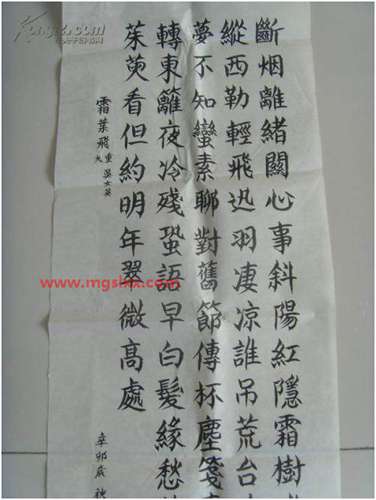 斷烟離緒關心事斜陽紅隱霜樹
縱西勒輕飛迅羽凄凉誰吊荒台
夢不知蠻素聊對舊節傳杯塵箋
轉東籬夜冷殘蛩語早白髮緣愁
茱萸看但約明年翠微高處
霜葉飛重九吳文英
辛卯歲
www.mgslxx.com